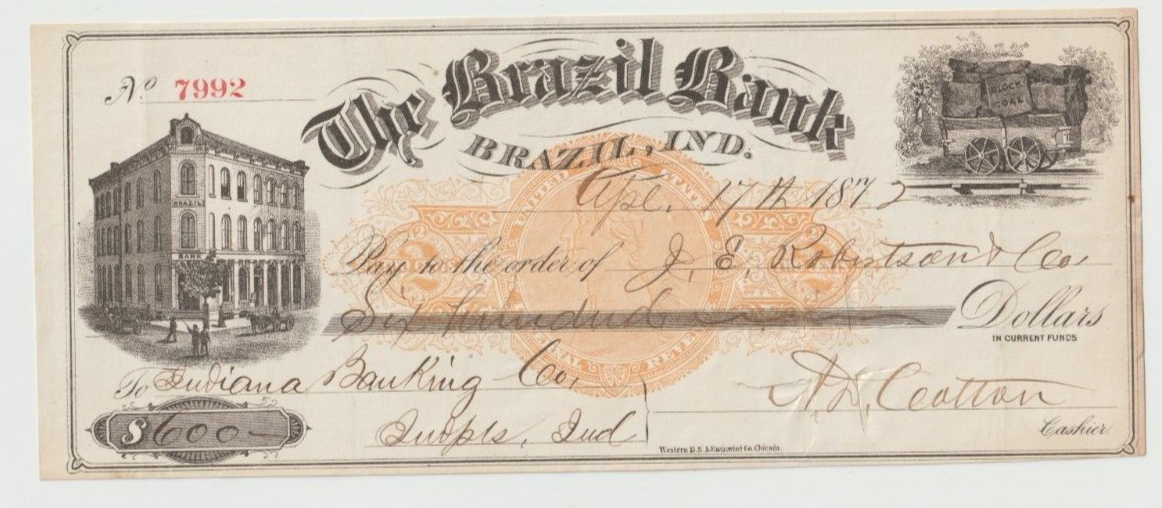 No 7992
The Brazil Bank
BRAZIL, IND.
BLOCK COAL
BRAZIL
BANK
UNITED STATES
Apl. 17th 1872
Pay to the order of J. E. Robertson & Co.
Six hundred Dollars
IN CURRENT FUNDS
INTERNAL REVENUE
To Indiana Banking Co,
A. D. Cotton
$600-
Indpls, Ind
Cashier.
Western B.N. & Engraving Co. Chicago.